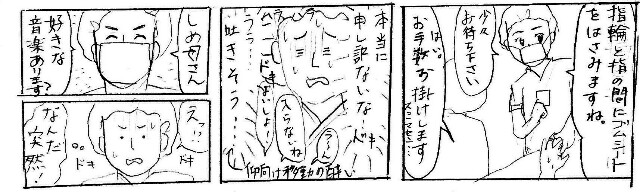 指輪と指の間にゴムシート
をはさみますね。
少々
お待ち下さい
はい。
お手数お掛けします
スミマセン…
本当に
申し訳ないな…
ドキ
うぅ…
吐きそう…
ドキ
よいしょ!
入らないね
うーん
仰向け移動の酔い
しめ母さん
好きな
音楽あります?
えっ…
ドキ
なんだ
突然!
ドキ